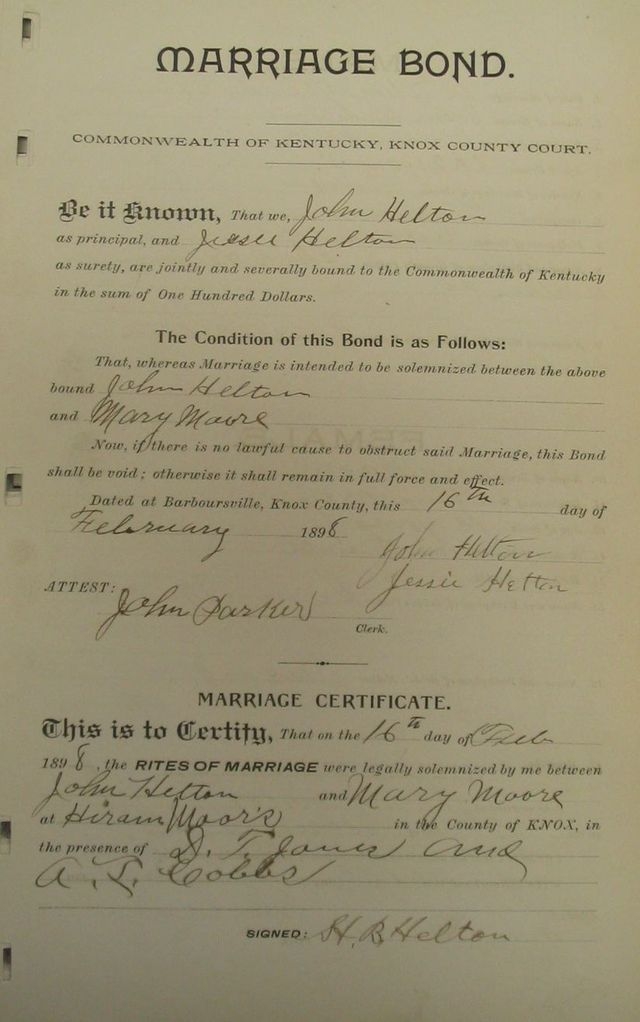 MARRIAGE BOND.
COMMONWEALTH OF KENTUCKY, KNOX COUNTY COURT.
Be it Known, That we, John Helton
as principal, and Jessie Helton
as surety, are jointly and severally bound to the Commonwealth of Kentucky
in the sum of One Hundred Dollars.
The Condition of this Bond is as Follows:
That, whereas Marriage is intended to be solemnized between the above
bound John Helton
and Mary Moore
Now, if there is no lawful cause to obstruct said Marriage, this Bond
shall be void; otherwise it shall remain in full force and effect.
Dated at Barboursville, Knox County, this 16th day of
February 1898
John Helton
Jessie Helton
ATTEST:
John Parker
Clerk.
MARRIAGE CERTIFICATE.
This is to Certify, That on the 16th day of Feb
1898, the RITES OF MARRIAGE were legally solemnized by me between
John Helton and Mary Moore
at Hiram Moor's in the County of KNOX, in
the presence of D. T. Jones and
A. L. Cobbs
SIGNED: H. B. Helton